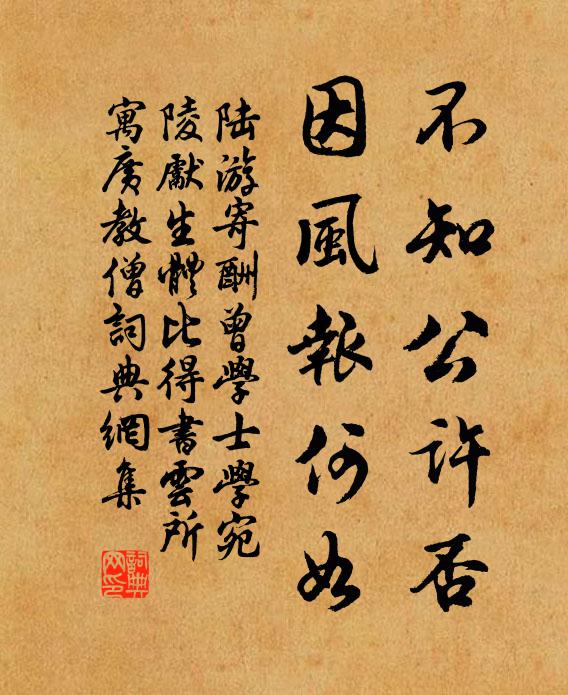 不知公許否
因風報何如
陸游寄酬曾學士學宛
陵獻生體比得書雲所
寓廣教僧詞典網集
詞典网印